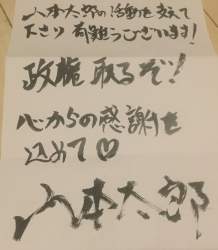 山本太郎の活動を支えて
下さり有難うございます!
政権取るぞ!
心からの感謝を
込めて♡
山本太郎